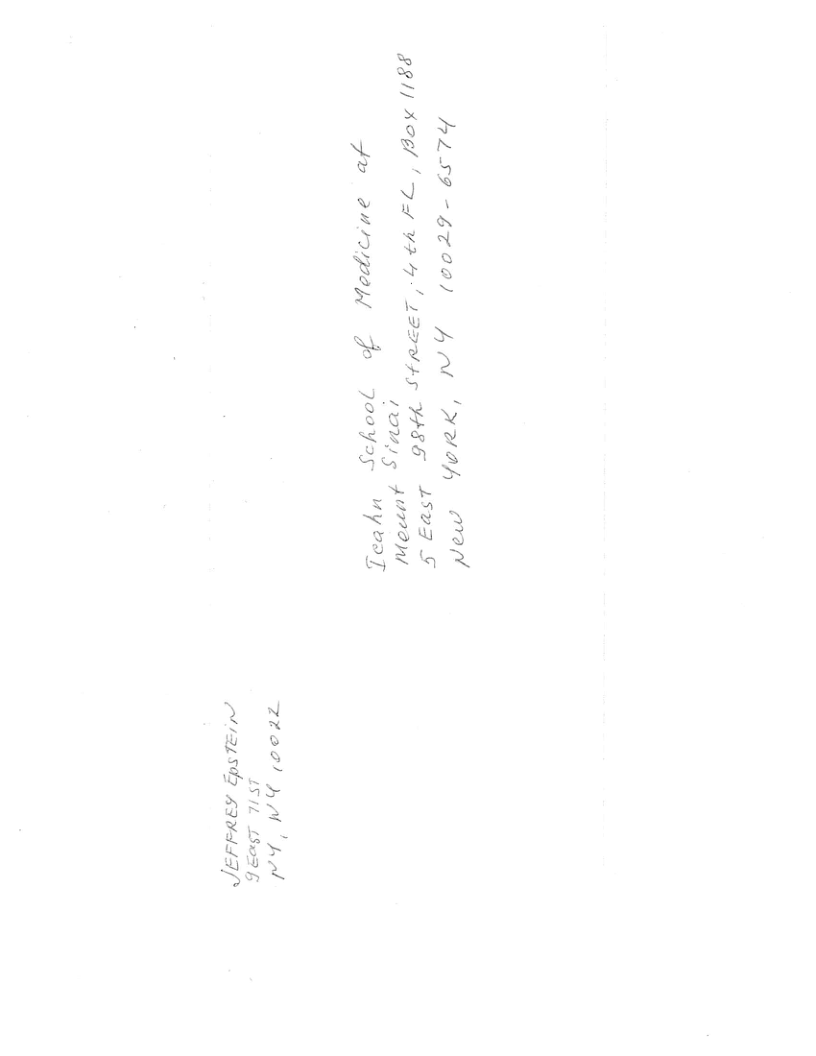 JEFFREY EPSTEIN
9 EAST 71ST
NY, NY 10022
Icahn School of Medicine at
Mount Sinai
5 East 98th STREET, 4th FL, BOX 1188
New YORK, NY 10029-6574